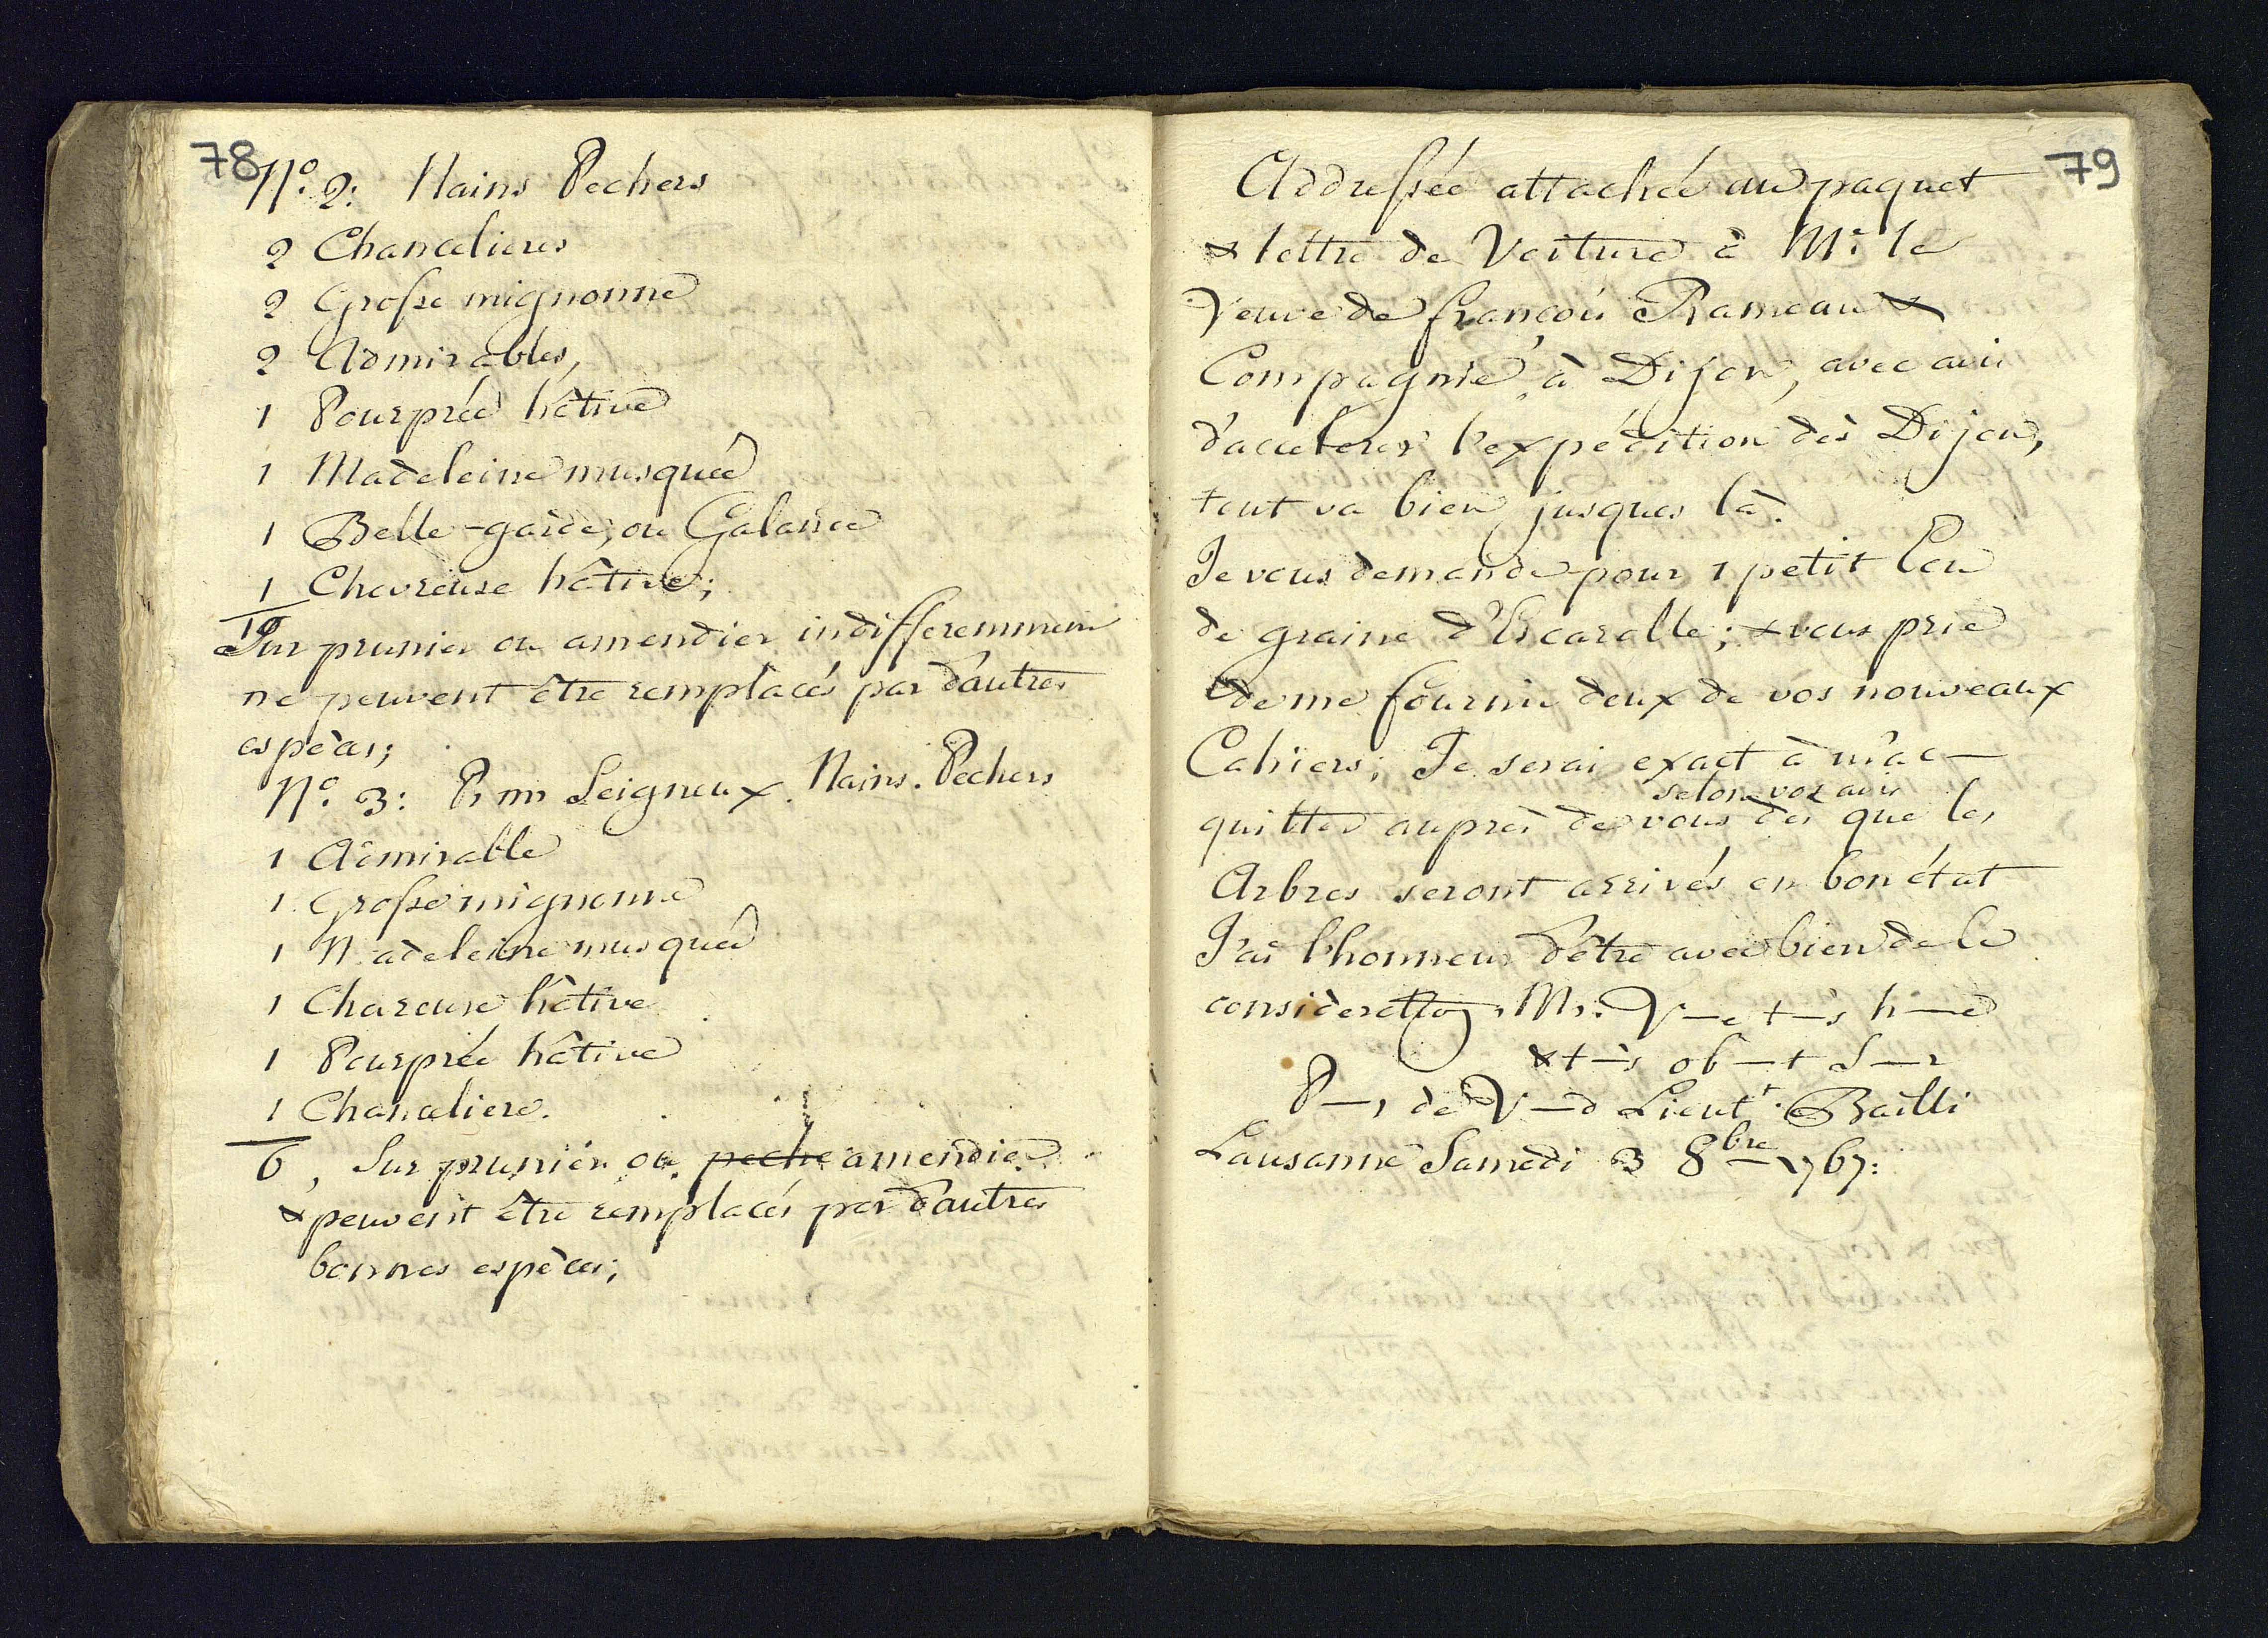 78
N.º 2: Nains Pechers
2 Chancelieres
2 Grosse mignonne
2 Admirables,
1 Pourprée hâtive
1 Madeleine musquée
1 Belle-garde, ou Galande
1 Chevreuse hâtive;
10
Sur prunier ou amendier indifferemment
ne peuvent être remplacés par d'autres
espèces;
N.º 3: Pr mr Seigneux. Nains. Pechers
1 Admirable
1 Grosse mignonne
1 Madeleine musquée
1 Chareuse hâtive
1 Pourprée hâtive
1 Chanceliere.
6, Sur prunier ou peche amendier
& peuvent être remplacés par d'autres
bonnes espèces;
79
Addressée attachée au paquet
& lettre de Voiture à M.e la
Veuve de françois Rameau &
Compagnie, à Dijon, avec avis
d'accelerer l'expédition dès Dijon,
tout va bien jusques là.
Je vous demande pour 1 petit Ecu
de graine d'Escarolle; & vous prie
de me fournir deux de vos nouveaux
Cahiers; Je serai exact à m'ac-
selon vos avis
quitter auprès de vous dès que les
Arbres seront arrivés en bon état
J'ai l'honneur d'être avec bien de la
consideration, Mr. V—e t—s h—e
& t—s ob—t S—r
P—s de V—d Lieut.t Bailli
Lausanne Samedi 3 8bre 1767: